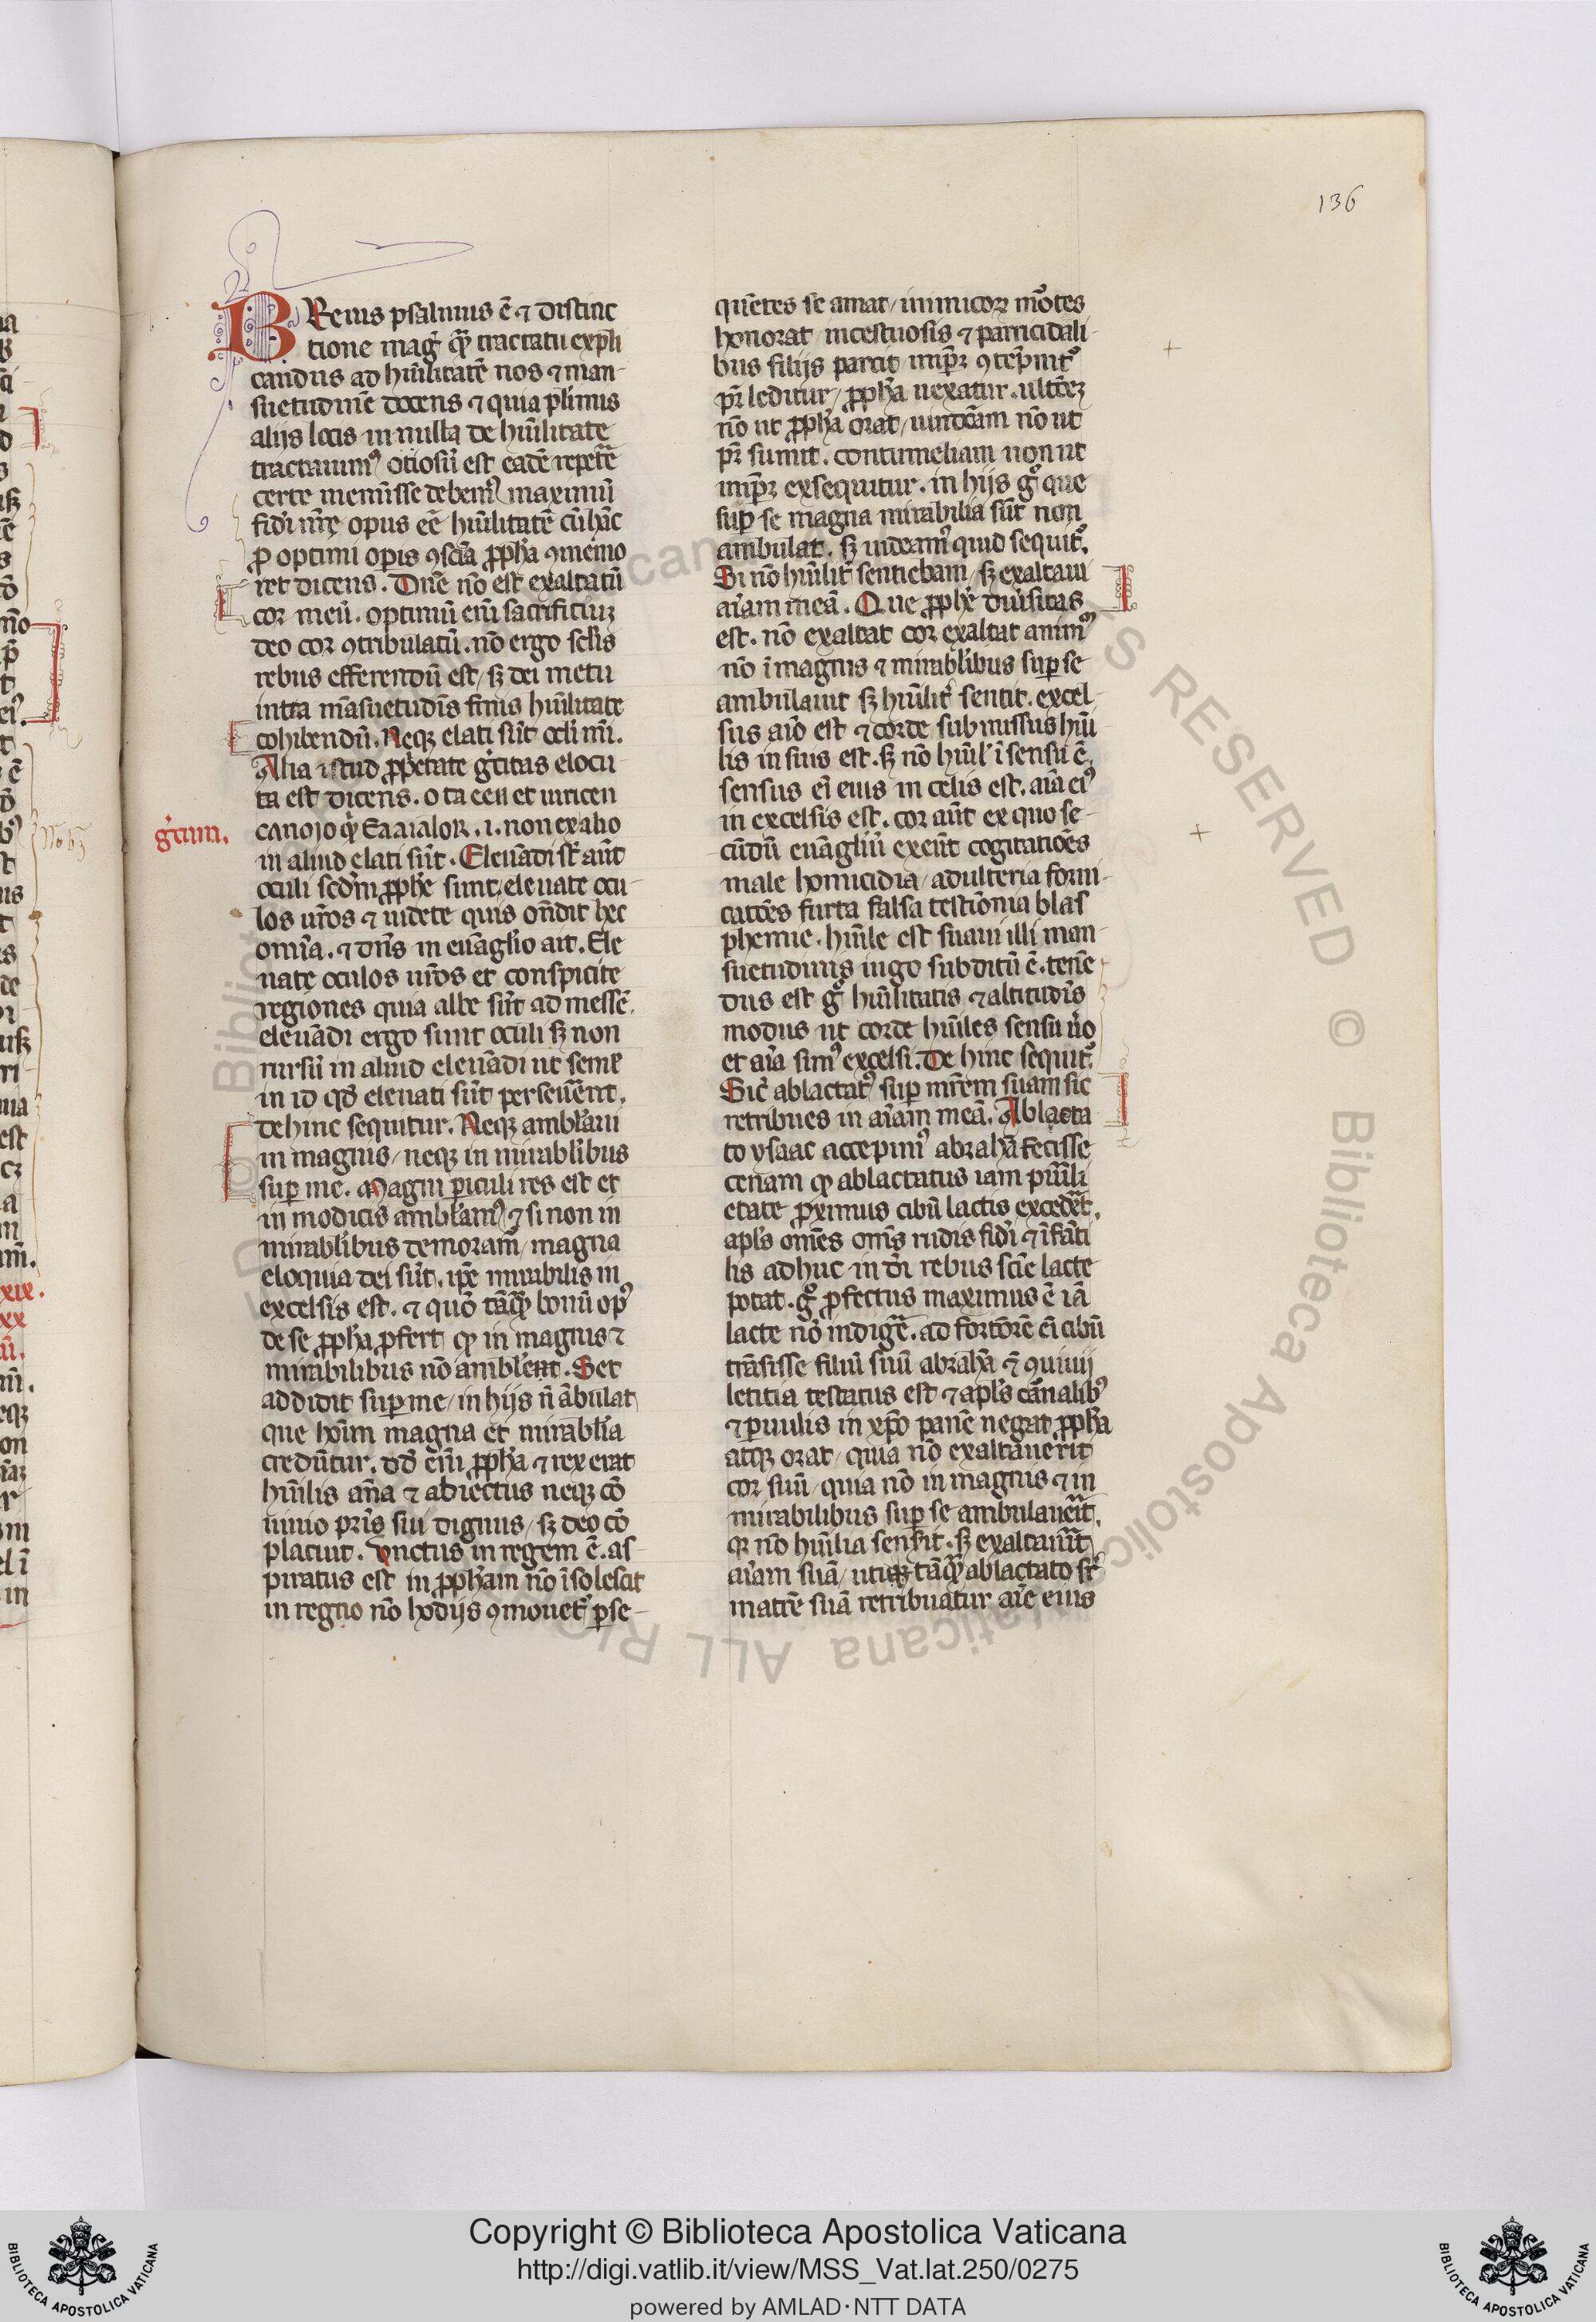 136
BReuis psalmus ē ⁊ distinc
tione mag̉ qᷓ tractatu expli
candus ad hūilitatē nos ⁊ man-
suetudinē docens ⁊ quia p̄limis
alijs locis in nulla de hūilitate
tractauim⁹ otiosū est eadē repetēͣ
certe meminisse debem⁹ maximū
fidei nr̄ę opus eē hūilitatē cū hāc
ꝓ optimi opis ꝯsciā ꝓph̄a ꝯmemo
ret dicens. Dn̄e nō est exaltatū
cor meū. optimū eni sacrificiuꝫ
deo cor ꝯtribulatū. nō ergo sclis
rebus efferendū est / sꝫ dei metu
intra māsuetudis finis hūilitate
cohibendū. Neqꝫ elati sūt oc̄li mi.
Alia istud ꝓpetate gͨcitas elocu-
ta est dicens. o ta
. i. non ex alio
g̊cum.
in aliud elati sūt. Eleuādi st̄ aūt
oculi sedm ꝓph̄e sunt. eleuate ocu-
los ur̄os ⁊ uidete quis on̄dit hec
omīa. ⁊ dn̄s in euāglio ait. Ele
uate oculos ur̄os et conspicite
regiones quia albe sūt ad messē.
eleuādi ergo sunt oculi sꝫ non
rursū in aliud eleuādi ut semꝉ
in id qd̄ eleuati sūt perseuerēt.
dehinc sequitur. Neqꝫ amblaui
in magnis / neqꝫ in mirablibus
suꝑ me. Magni ꝑiculi res est et
in modicis amblam⁹ ⁊ si non in
mirablibus demoram̄ / magna
eloquia dei sūt. ipe mirabilis in
excelsis est. ⁊ quō tāqᷓ bonū op⁹
de se ꝓph̄a ꝓfert ꝙ in magnis ⁊
mirabilibus nō amblet. Set
addidit suꝑ me / in hijs n̄ ābulat
que hoim magna et mirablia
credūtur. dd̄ eni ꝓph̄a ⁊ rex erat
hūilis an̄a ⁊ abiectus neqꝫ cō
uiuio pr̄is sui dignus / sꝫ deo cō
placuit. vnctus in regem ē. as-
piratus est in ꝓph̄am nō īsolescit
in regno nō hodijs ꝯmouet᷑ ꝑse-
quētes se amat / inimicoꝝ mōtes
honorat / incestuosis ⁊ parricidali-
bus filijs parcit / impꝝ ꝯtēpnit᷑
pr̄ leditur / ꝓph̄a uexatur. ultōeꝫ
nō ut ꝓph̄a orat / uindcām nō ut
pr̄ sumit. contumeliam non ut
impꝝ exsequitur. in hijs g̊ que
suꝑ se magna mirabilia sūt non
ambulat. sꝫ uideam⁹ quid sequit᷑.
Si nō hūilit̉ sentiebam / sꝫ exaltaui
aīam meā. Que ꝓph̄e diu̓sitas
est. nō exaltat cor exaltat anim⁹
nō ī magnis ⁊ mirablibus suꝑ se
ambulauit sꝫ hūilit̉ sentit. excel-
sus aīo est ⁊ corde submissus hūi
lis in suis est. sꝫ nō hūil' ī sensu ē.
sensus ei eius in celis est. aīa ei⁹
in excelsis est. cor aūt ex quo se-
cūdū euāgliū exeūt cogitatiōes
male homicidia / adulteria forni-
catōes furta falsa testiōnia blas
phemie. hūile est suaui illi man-
suetudinis iugo subditū ē. tenē-
dus est g̊ hūilitatis ⁊ altitudīs
modus ut corde hūiles sensu ūo
et aīa sim⁹ excelsi. De hinc sequit᷑.
Sic̄ ablactat⁹ suꝑ mr̄em suam sic
retribues in aīam meā. Ablacta-
to ysaac accepim⁹ abrahā fecisse
cenam ꝙ ablactatus iam puūli
etate ꝓximus cibū lactis excedēt.
apl's om̄es om̄s rudis fidei ⁊ īfāti
lis adhuc in dei rebus scīe lacte
potat. g̊ ꝓfectus maximus ē iā
lacte nō indigēͣ. ad fortiorē ei cibū
trāsisse filiū suū abrahā ē ꝯuiuij
letitia testatus est ⁊ apl's carnalib⁹
⁊ ꝑuulis in xp̄o panē negat ꝓph̄a
atqꝫ orat / quia nō exaltauerit
cor suū / quia nō in magnis ⁊ in
mirabilibus suꝑ se ambulauerit.
qꝛ nō hūilia sensit. sꝫ exaltauit
aīam suā / utiqꝫ tāqᷓ ablactato sr̄
matrē suā retribuatur aīe eius
Copyright © Biblioteca Apostolica Vaticana
http://digi.vatlib.it/view/MSS_Vat.lat.250/0275
powered by AMLAD·NTT DATA